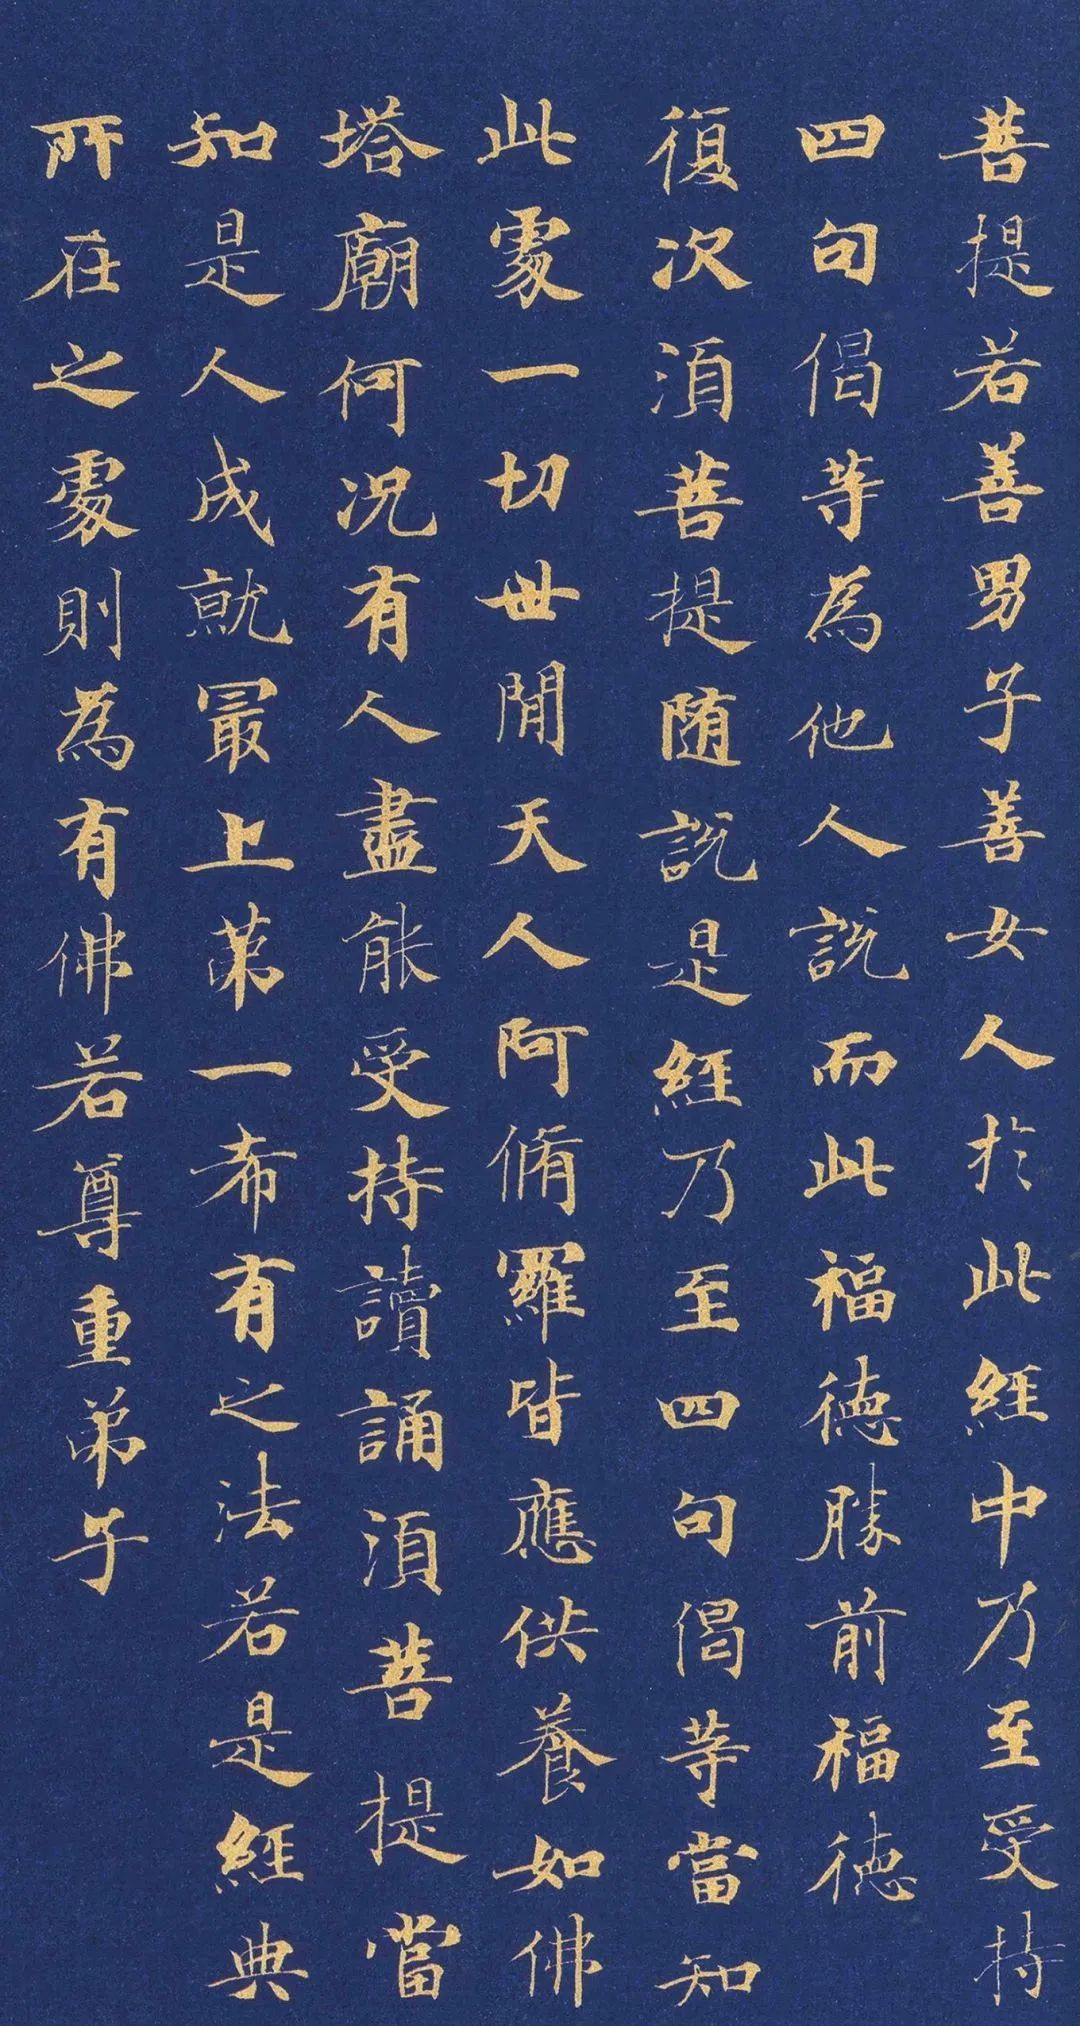 菩提若善男子善女人於此經中乃至受持
四句偈等為他人說而此福德勝前福德
復次須菩提随說是經乃至四句偈等當知
此處一切世間天人阿脩羅皆應供養如佛
塔廟何况有人盡能受持讀誦須菩提當
知是人成就最上第一希有之法若是經典
所在之處則為有佛若尊重弟子